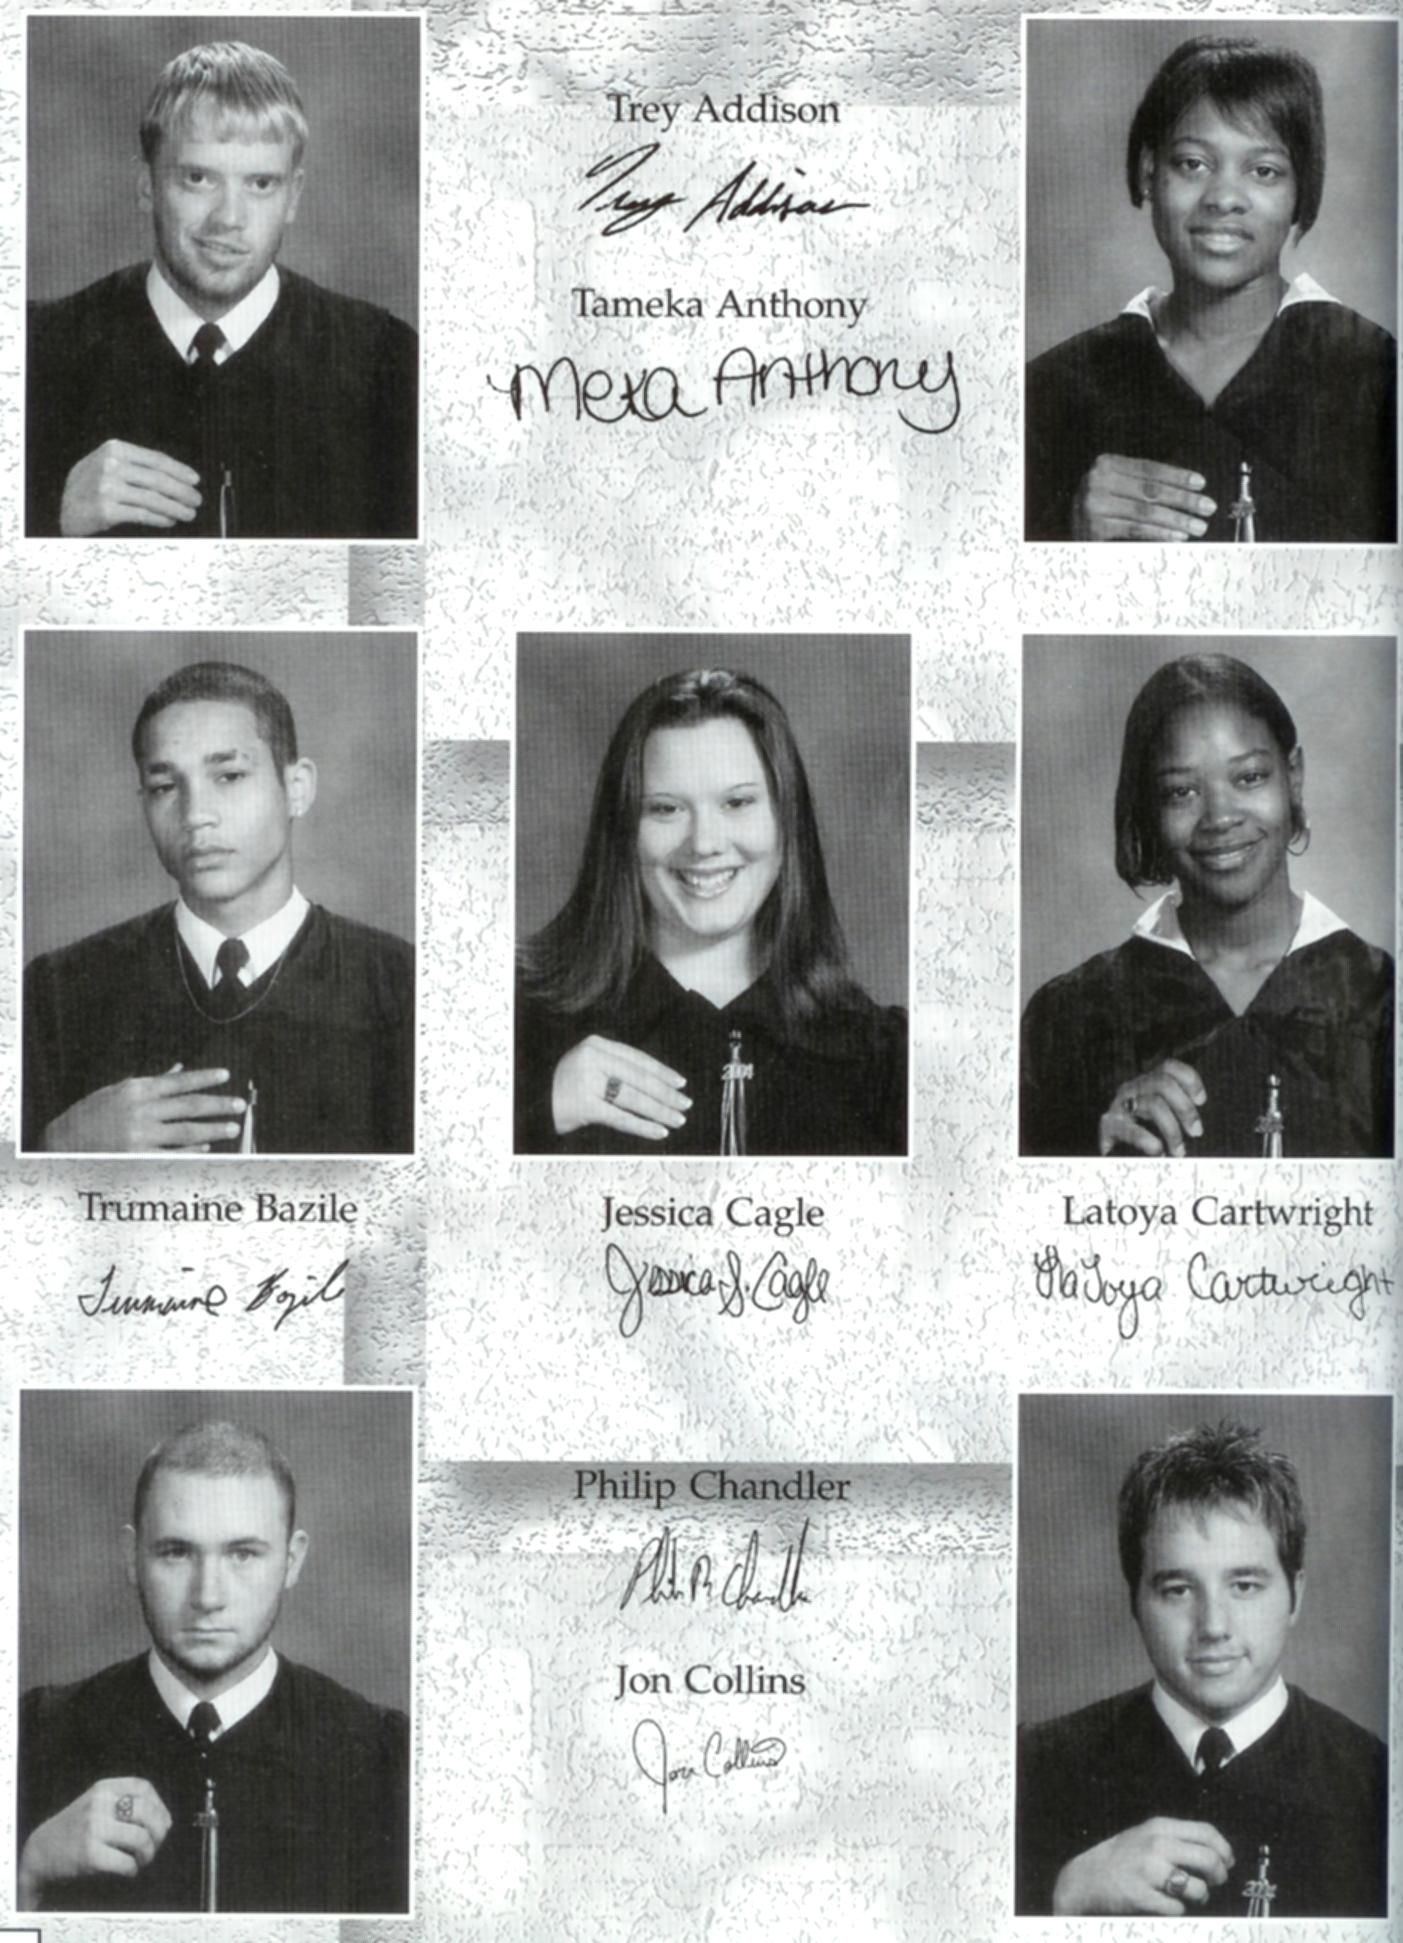 Trey Addison
Trey Addison
Tameka Anthony
Meka Anthony
2004
Trumaine Bazile
Trumaine Bazile
Jessica Cagle
Jessica S. Cagle
Latoya Cartwright
LaToya Cartwright
Philip Chandler
Chandler
Jon Collins
Jon Collins
2004